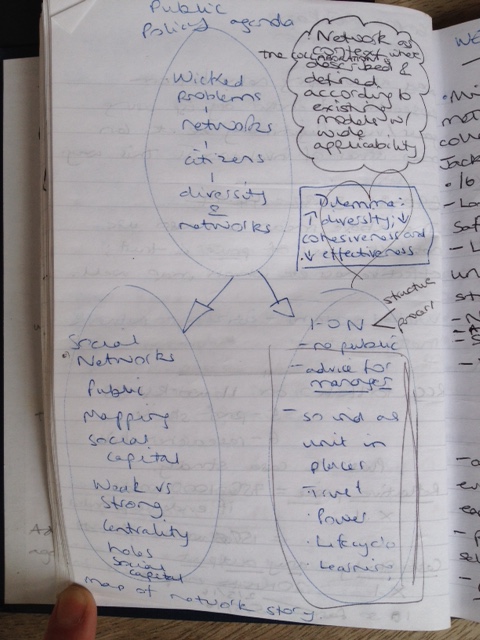 Public
Policy agenda
Wicked
problems
networks
citizens
diversity
&
networks
Network as
context where
the
described &
defined
according to
existing
models w/
wide
applicability
Dilemma:
↑ diversity; ↓
cohesiveness and
↓ effectiveness
Social
Networks
Public
Mapping
social
capital
Weak vs
Strong
Centrality
holes
social
capital
map of network story
I-ON
structure
- no public
- advice for
managers
- so ind as
unit in
places
Trust
· Power
· Lifecycle
· Learning